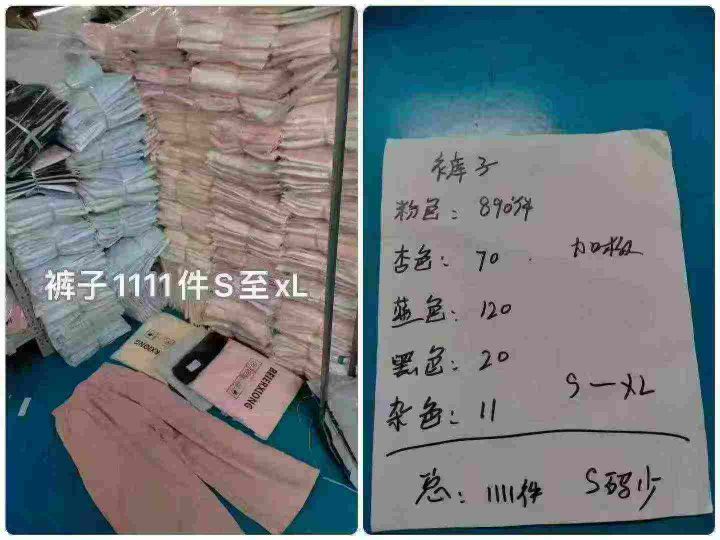 裤子1111件S至xL
BEIERXIONG
裤子
粉色：890件
杏色：70
蓝色：120
黑色：20
杂色：11
S—XL
总：1111件 S码少